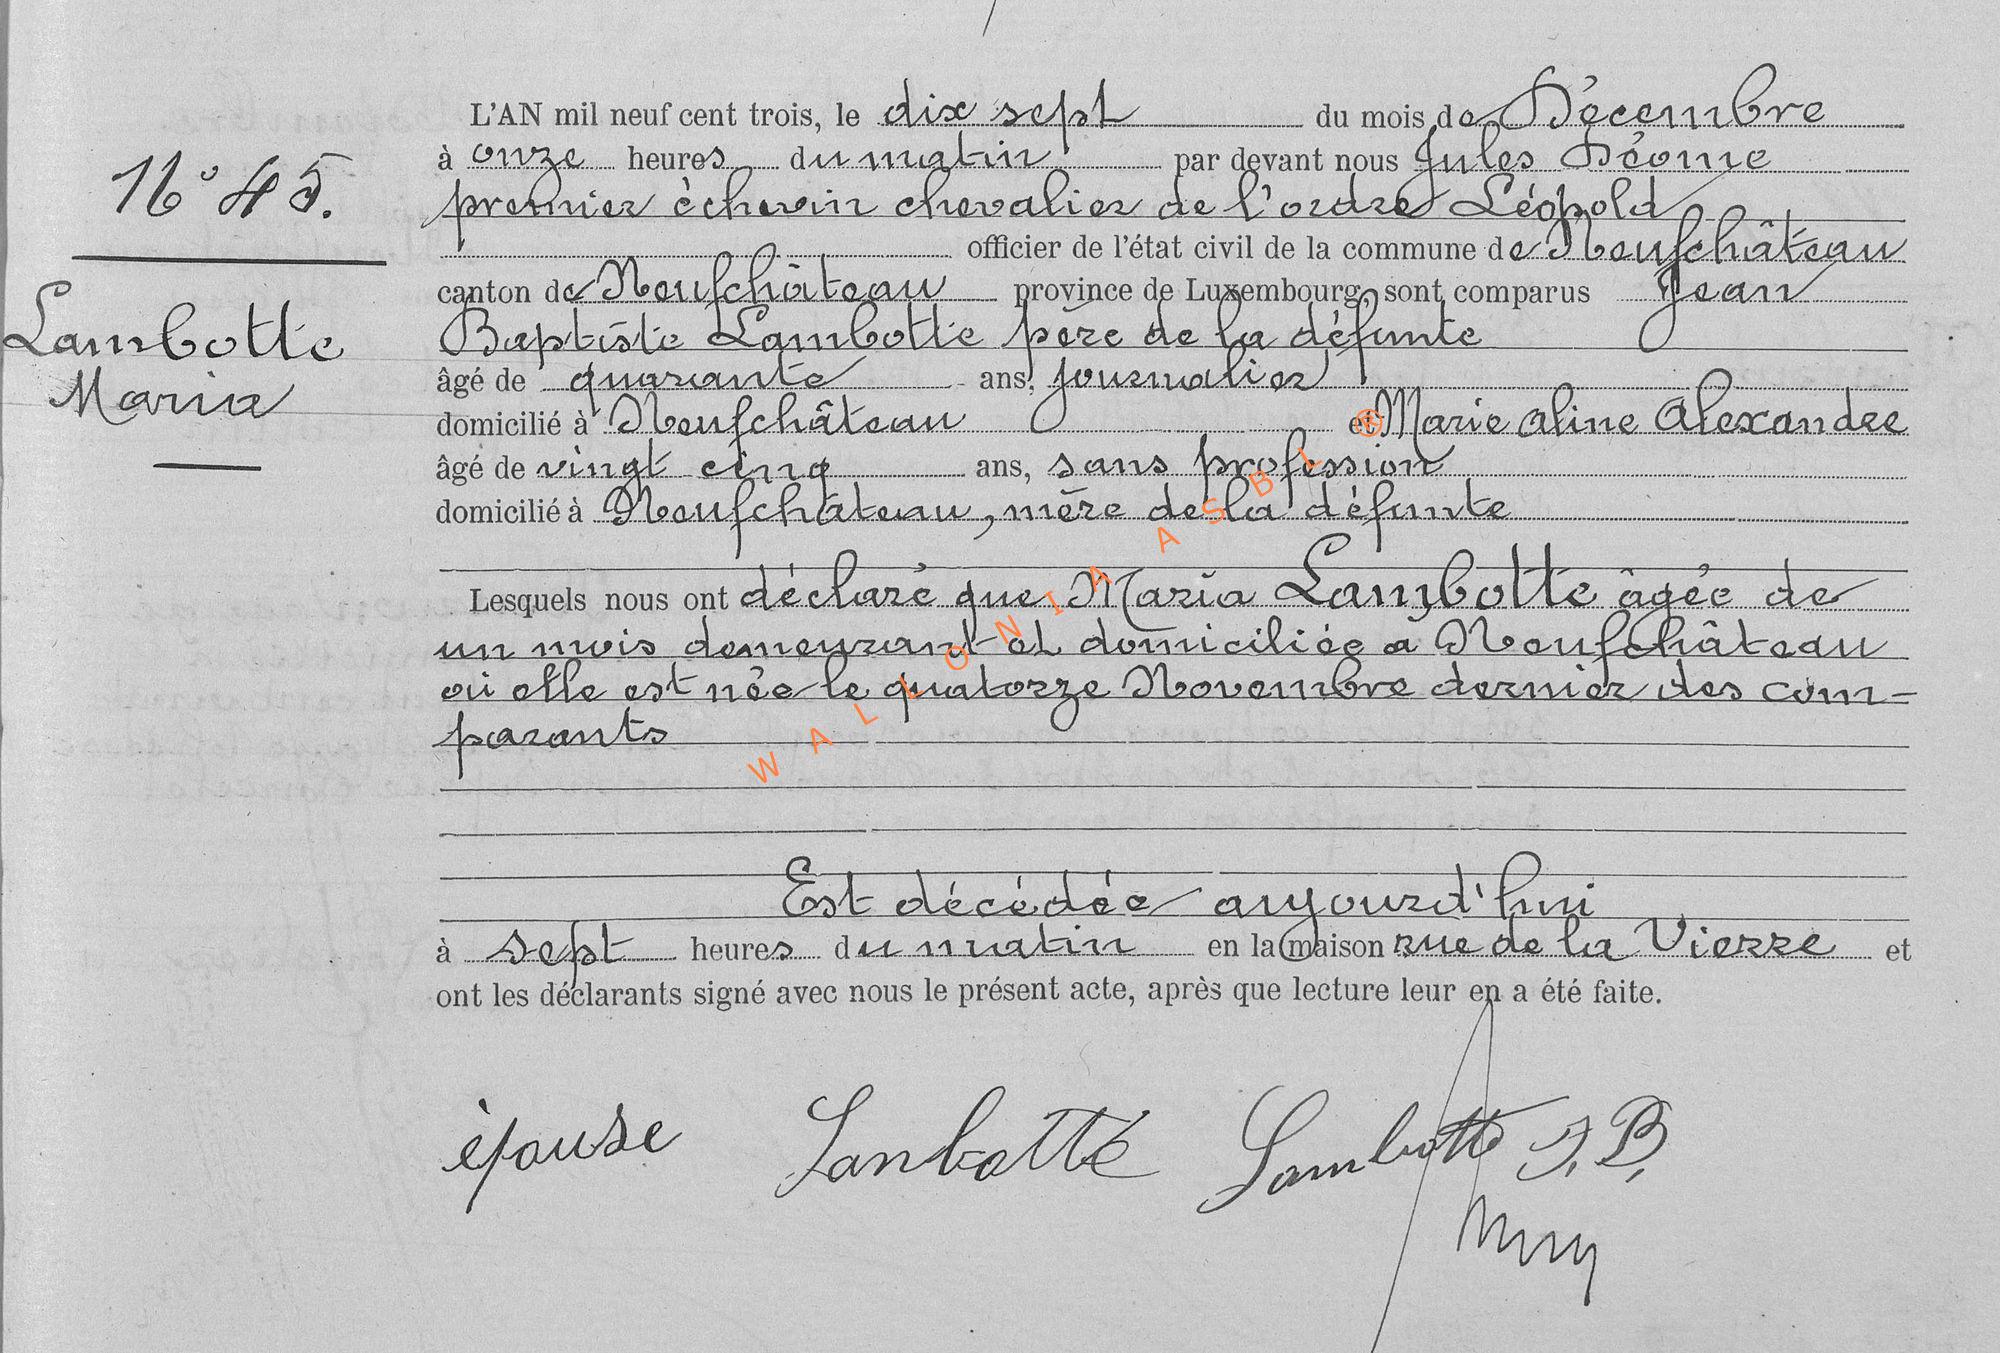 L'AN mil neuf cent trois, le dix sept du mois de Décembre
à onze heures du matin par devant nous Jules Déome
premier échevin chevalier de l'ordre Léopold
officier de l'état civil de la commune de Neufchâteau
canton de Neufchâteau province de Luxembourg, sont comparus Jean
Baptiste Lambotte père de la défunte
âgé de quarante ans, journalier
domicilié à Neufchâteau et Marie Aline Alexandre
âgé de vingt cinq ans, sans profession
domicilié à Neufchâteau, mère de la défunte
Lesquels nous ont déclaré que Maria Lambotte âgée de
un mois demeurant et domiciliée a Neufchâteau
où elle est née le quatorze Novembre dernier des com-
parants
Est décédée aujourd'hui
à sept heures du matin en la maison rue de la Vierre et
ont les déclarants signé avec nous le présent acte, après que lecture leur en a été faite.
N° 45.
Lambotte
Maria
épouse Lanbotte Lambotte J. B.
WALLONIA ASBL ®